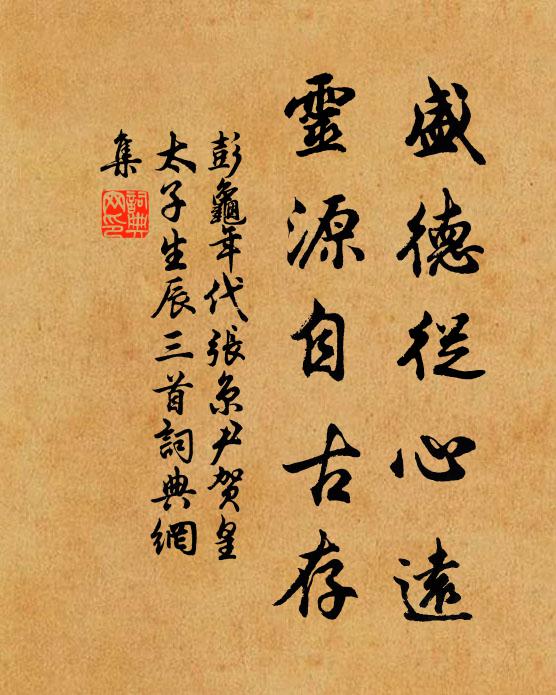 盛德從心遠
靈源自古存
彭龜年代張京尹賀皇
太子生辰三首詞典網
集
詞典
网印